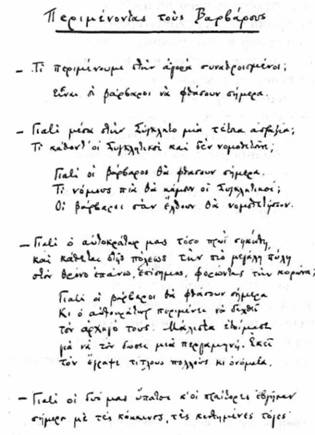 Περιμένοντας τους Βαρβάρους
– Τι περιμένουμε στην αγορά συναθροισμένοι;
Είναι οι βάρβαροι να φθάσουν σήμερα.
– Γιατί μέσα στην Σύγκλητο μιά τέτοια απραξία;
Τι κάθοντ' οι Συγκλητικοί και δεν νομοθετούνε;
Γιατί οι βάρβαροι θα φθάσουν σήμερα.
Τι νόμους πια θα κάμουν οι Συγκλητικοί;
Οι βάρβαροι σαν έλθουν θα νομοθετήσουν.
– Γιατί ο αυτοκράτωρ μας τόσο πρωί σηκώθη,
και κάθεται στης πόλεως την πιο μεγάλη πύλη
στον θρόνο επάνω, επίσημος, φορώντας την κορώνα;
Γιατί οι βάρβαροι θα φθάσουν σήμερα
Κι ο αυτοκράτωρ περιμένει να δεχθεί
τον αρχηγό τους. Μάλιστα ετοίμασε
για να τον δώσει μια περγαμηνή. Εκεί
τον έγραψε τίτλους πολλούς κι ονόματα.
– Γιατί οι δυό μας ύπατοι κ' οι πραίτορες εβγήκαν
σήμερα με τες κόκκινες, τες κεντημένες τόγες